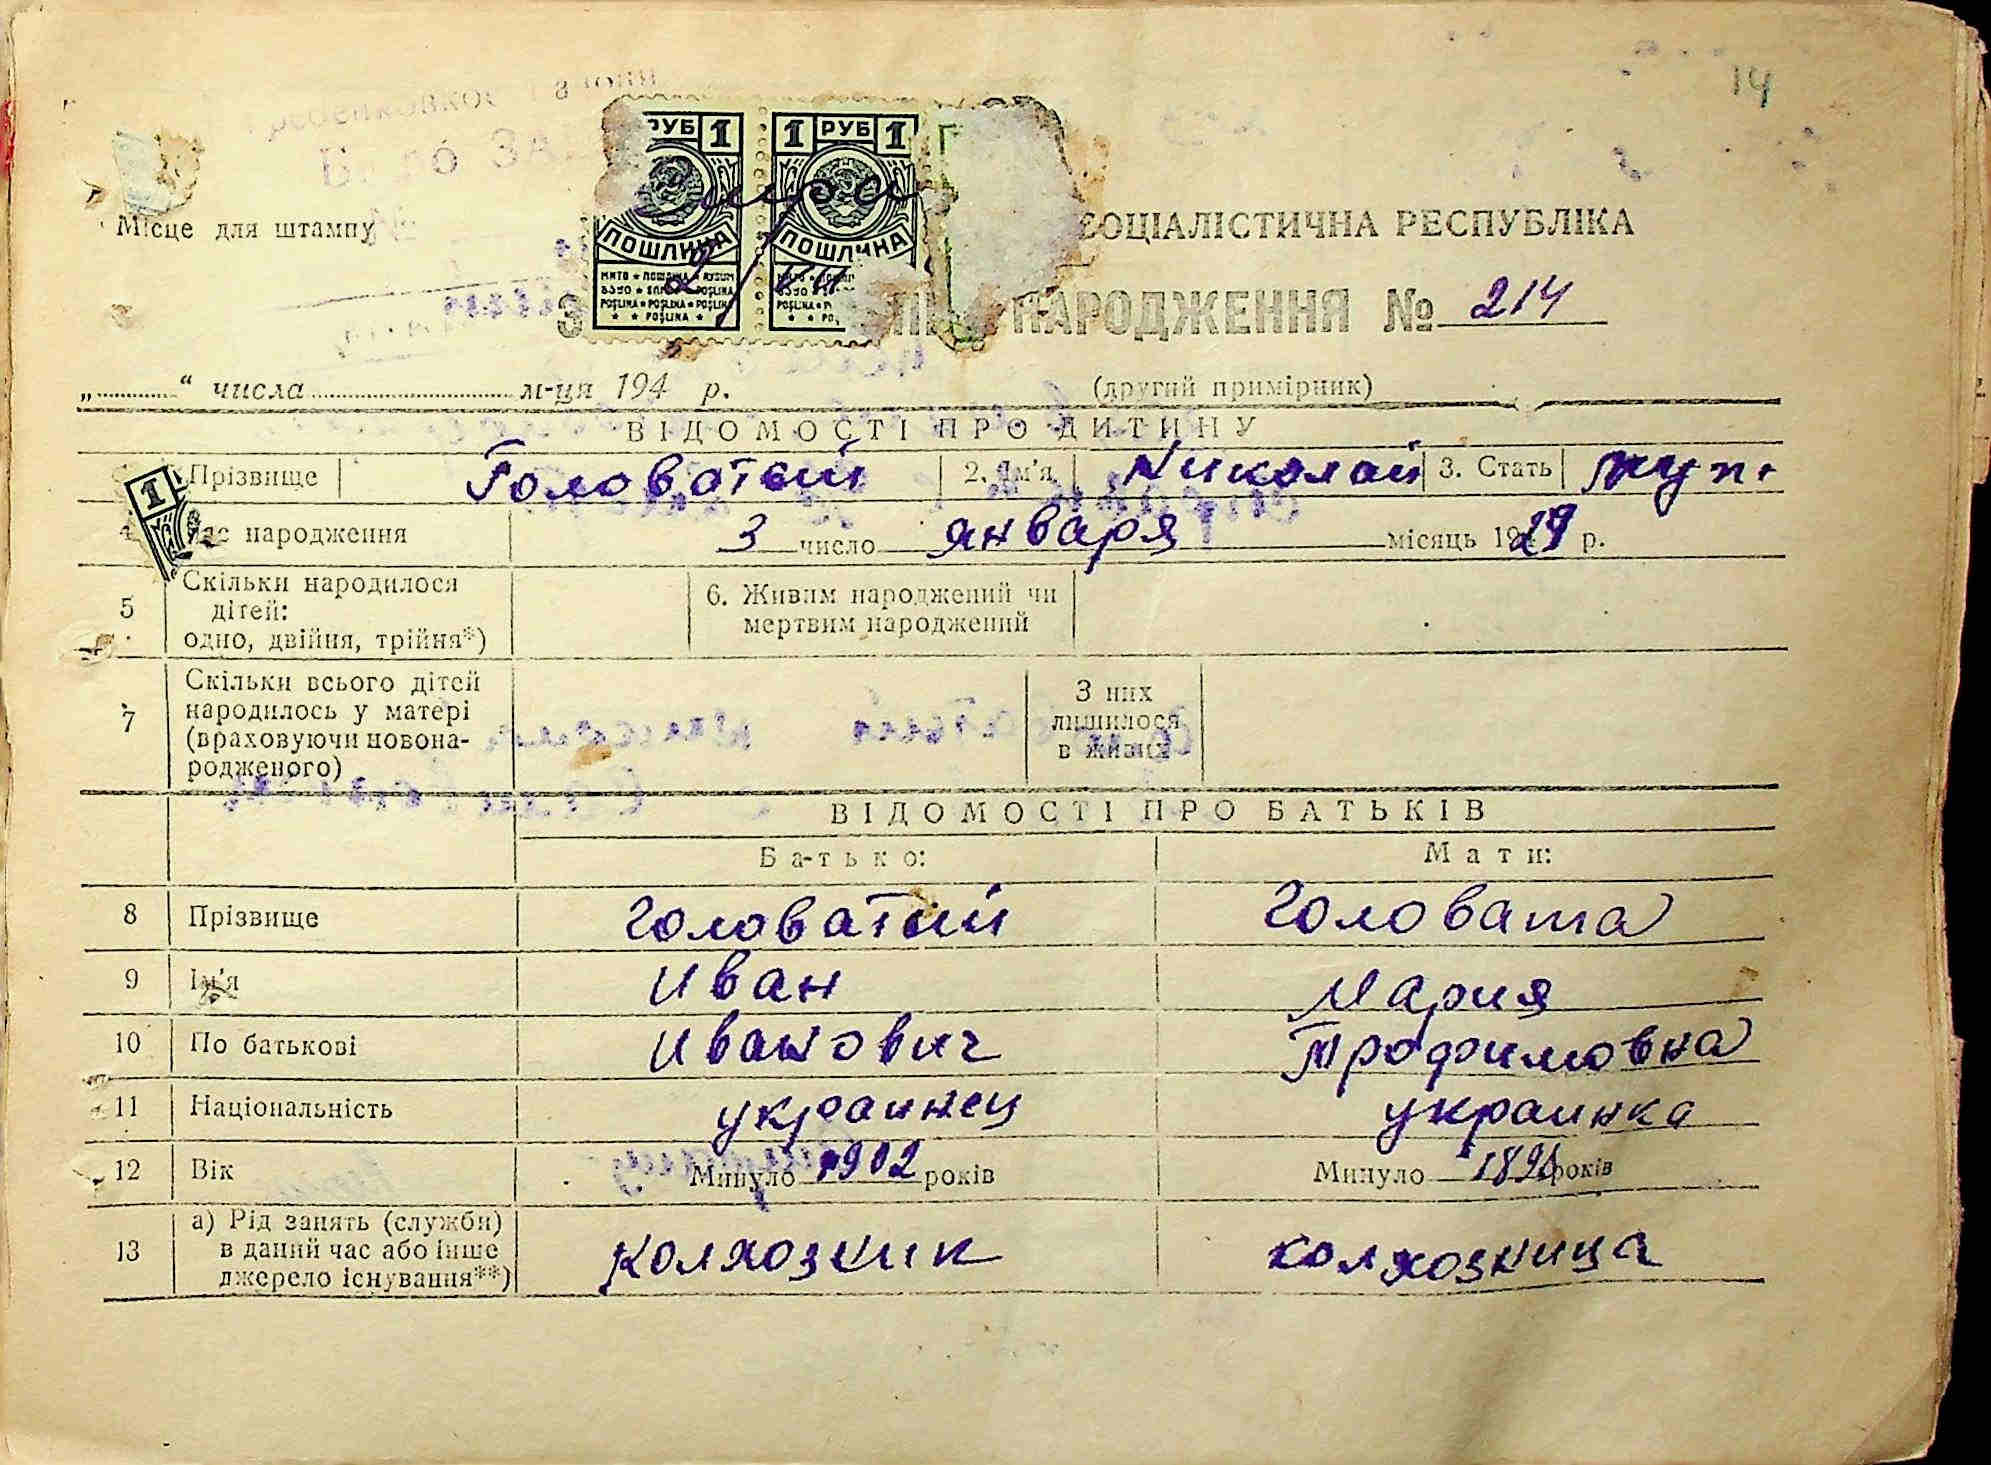 14
Місце для штампу
СОЦІАЛІСТИЧНА РЕСПУБЛІКА
РУБ 1 1 РУБ 1
ПОШЛИНА ПОШЛИНА
НАРОДЖЕННЯ № 214
„ “ числа м-ця 194 р. (другий примірник)
ВІДОМОСТІ ПРО ДИТИНУ
Прізвище Головатый 2. Ім'я Николай 3. Стать муж.
1
4 Час народження 3 число января місяць 1929 р.
5 Скільки народилося
дітей:
одно, двійня, трійня*)
6. Живим народжений чи
мертвим народжений
7 Скільки всього дітей
народилось у матері
(враховуючи новона-
родженого)
З них
лишилося
в живих
ВІДОМОСТІ ПРО БАТЬКІВ
Батько: Мати:
8 Прізвище Головатый Головата
9 Ім'я Иван Мария
10 По батькові Иванович Трофимовна
11 Національність украинец украинка
12 Вік Минуло 1902 років Минуло років
13 а) Рід занять (служби)
в даний час або інше
джерело існування**)
колхозник колхозница